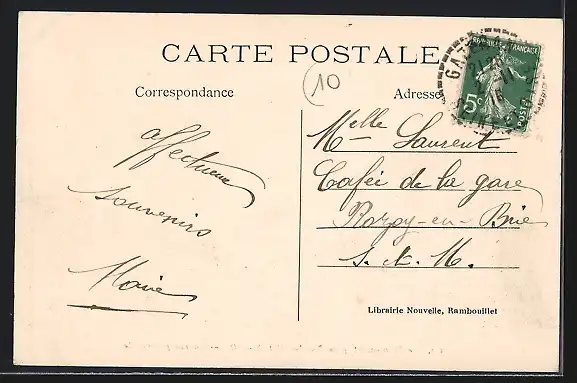 CARTE POSTALE
10
Correspondance
Adresse
affectueux
souvenirs
Marie
Mlle Laurent
Cafée de la gare
Rozoy-en-Brie
S. et M.
Librairie Nouvelle, Rambouillet
FRANÇAISE
5c
POSTES